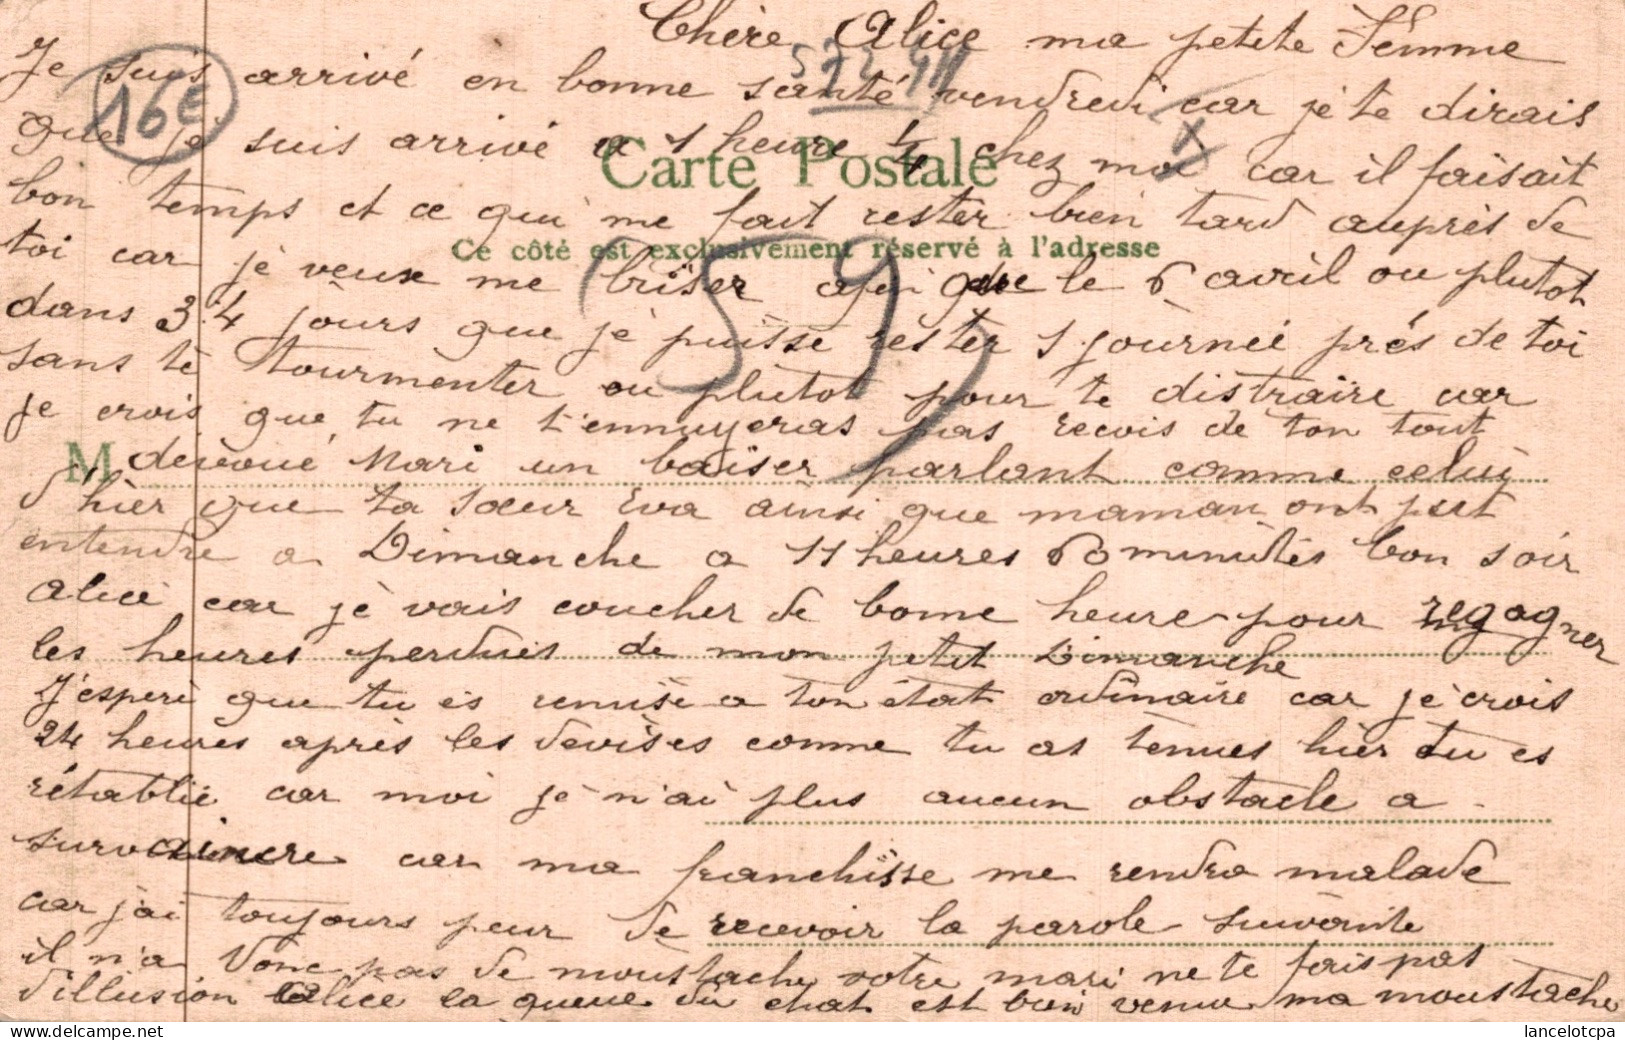 Chère Alice ma petite Femme
Je suis arrivé en bonne santé vendredi car je te dirais
16€
573 411
que je suis arrivé a 1 heure 1/4 chez moi car il faisait
Carte Postale
bon temps et ce qui me fait rester bien tard auprès de
Ce côté est exclusivement réservé à l'adresse
toi car je veux me briser afin que le 6 avril ou plutot
59
dans 3.4 jours que je puisse rester 1 journeé prés de toi
sans te tourmenter ou plutot pour te distraire car
je crois que tu ne t'ennuyeras pas recois de ton tout
M
devoué Mari un baiser parlant comme celui
d'hier que ta sœur Eva ainsi que maman ont put
entendre a Dimanche a 11 heures 60 minutes bon soir
Alice car je vais coucher de bonne heure pour regagner
les heures perdues de mon petit Dimanche
J'espere que tu es remise a ton état ordinaire car je crois
24 heures après les devises comme tu as tenues hier tu es
rétablie car moi je n'ai plus aucun obstacle a
survaincre car ma franchisse me rendra malade
car j'ai toujours peur de recevoir la parole suivante
il n'a donc pas de moustache votre mari ne te fais pas
d'illusion Alice la queue du chat est bien venu ma moustache
lancelotcpa